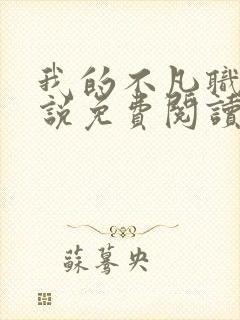 我的不凡職
說免費閱讀
蘇驀央